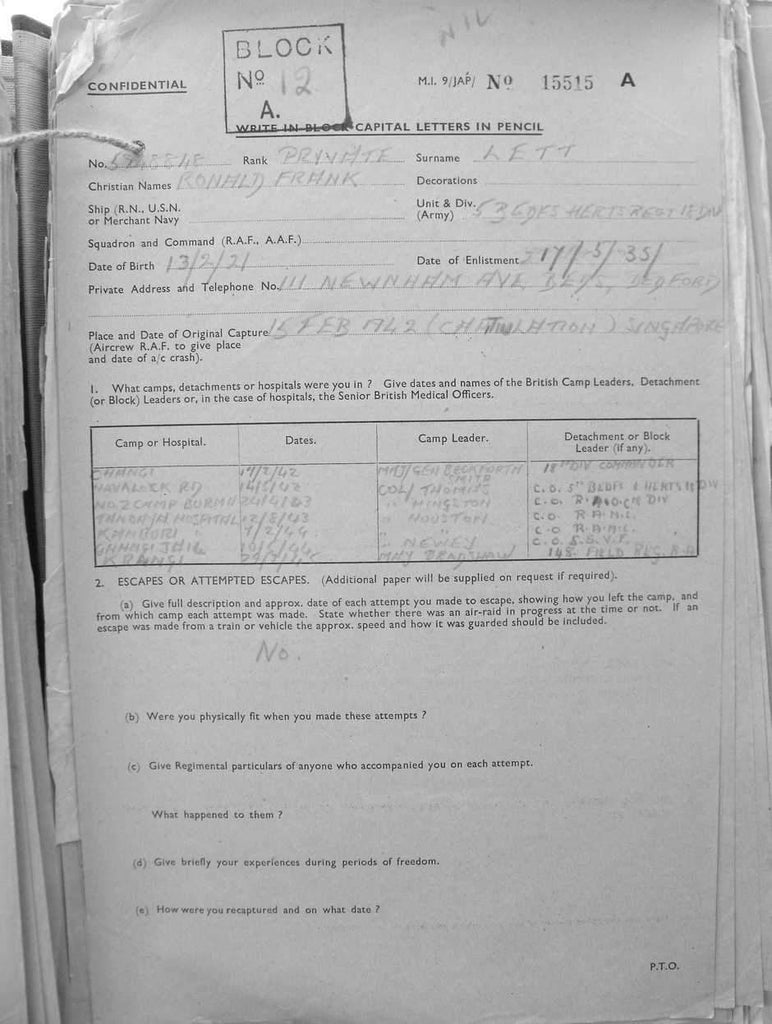 NIL
BLOCK
Nº 12
A.
CONFIDENTIAL
M.I. 9/JAP/ Nº 15515 A
WRITE IN BLOCK CAPITAL LETTERS IN PENCIL
No. Rank PRIVATE Surname LETT
Christian Names RONALD FRANK Decorations
Ship (R.N., U.S.N. or Merchant Navy
Unit & Div. (Army) HERTS REGT 18 DIV
Squadron and Command (R.A.F., A.A.F.)
Date of Birth 13/2/21 Date of Enlistment 17/5/35/
Private Address and Telephone No. 111 NEWNHAM AVE, BEDS, BEDFORD
Place and Date of Original Capture 15 FEB 1942 (CAPITULATION) SINGAPORE
(Aircrew R.A.F. to give place
and date of a/c crash).
1. What camps, detachments or hospitals were you in ? Give dates and names of the British Camp Leaders, Detachment
(or Block) Leaders or, in the case of hospitals, the Senior British Medical Officers.
Camp or Hospital. Dates. Camp Leader. Detachment or Block Leader (if any).
CHANGI 17/2/42 MAJ/GEN BECKFORTH SMITH 18TH DIV COMMANDER
HAVALOCK RD 14/5/42 COL/ THOMAS C.O. 5TH BEDFS & HERTS 18 DIV
NO. 2 CAMP BURMA 24/4/43 " C.O. DIV
HOSPITAL 12/8/43 " HOUSTON C.O. R.A.M.C.
KANBURI 7/2/44 " C.O. R.A.M.C.
CHANGI JAIL " NEWEY C.O. S.S.V.F.
KRANGI MAJ BRADSHAW 148 FIELD REG. R.A
2. ESCAPES OR ATTEMPTED ESCAPES. (Additional paper will be supplied on request if required).
(a) Give full description and approx. date of each attempt you made to escape, showing how you left the camp, and
from which camp each attempt was made. State whether there was an air-raid in progress at the time or not. If an
escape was made from a train or vehicle the approx. speed and how it was guarded should be included.
No.
(b) Were you physically fit when you made these attempts ?
(c) Give Regimental particulars of anyone who accompanied you on each attempt.
What happened to them ?
(d) Give briefly your experiences during periods of freedom.
(e) How were you recaptured and on what date ?
P.T.O.